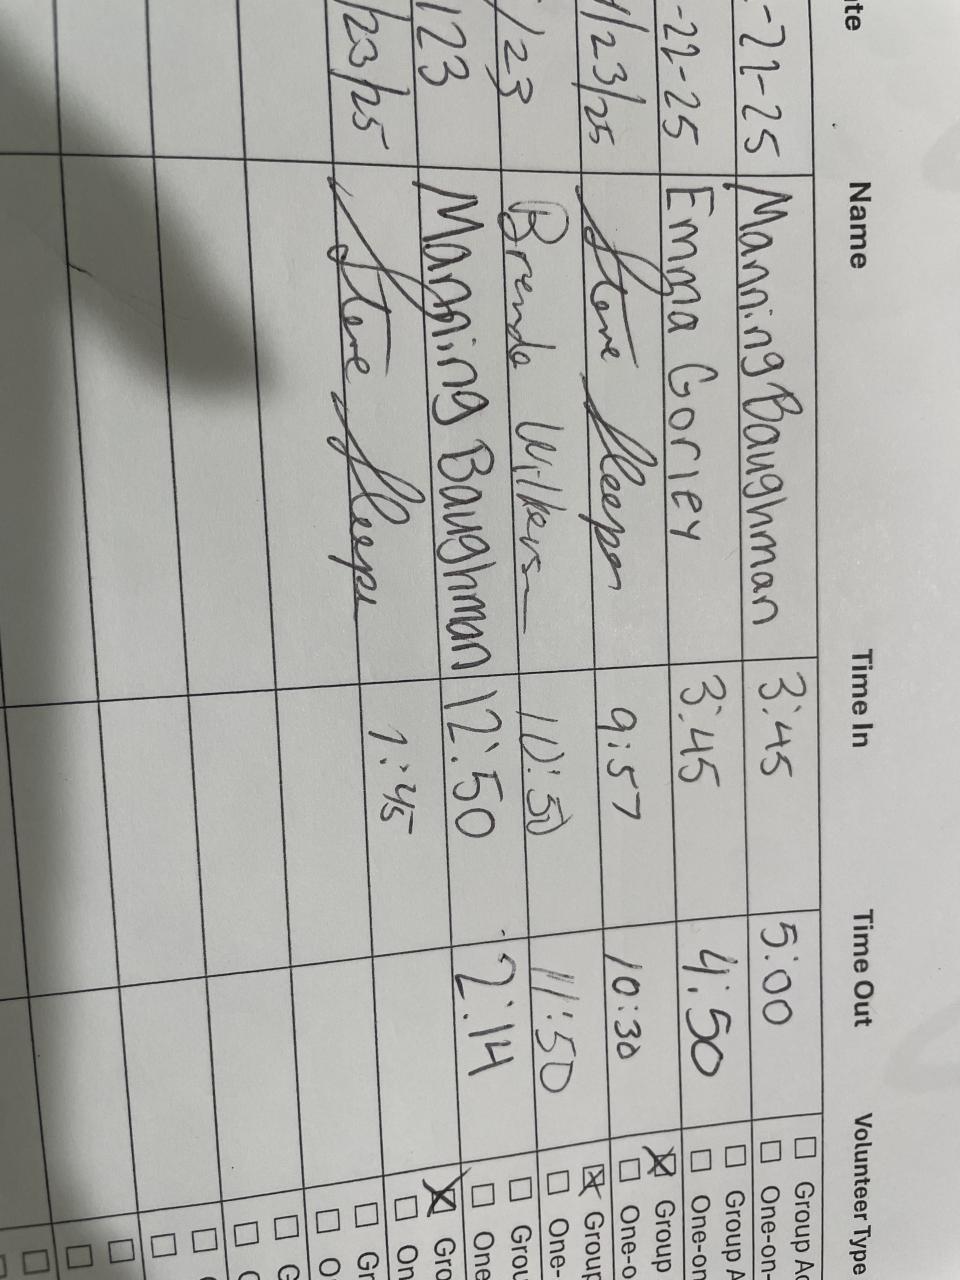 ate Name Time In Time Out Volunteer Type
-21-25 Manning Baughman 3:45 5:00 Group Ac
One-on-
-22-25 Emma Gorley 3:45 4:50 Group A
One-on
/23/25 Steve 9:57 10:30 Group
One-o
/23 Brenda 10:50 11:50 Group
One-
/23 Manning Baughman 12:50 2:14 Grou
One
/23/25 Steve 1:45 Gro
On
Gr
O
G